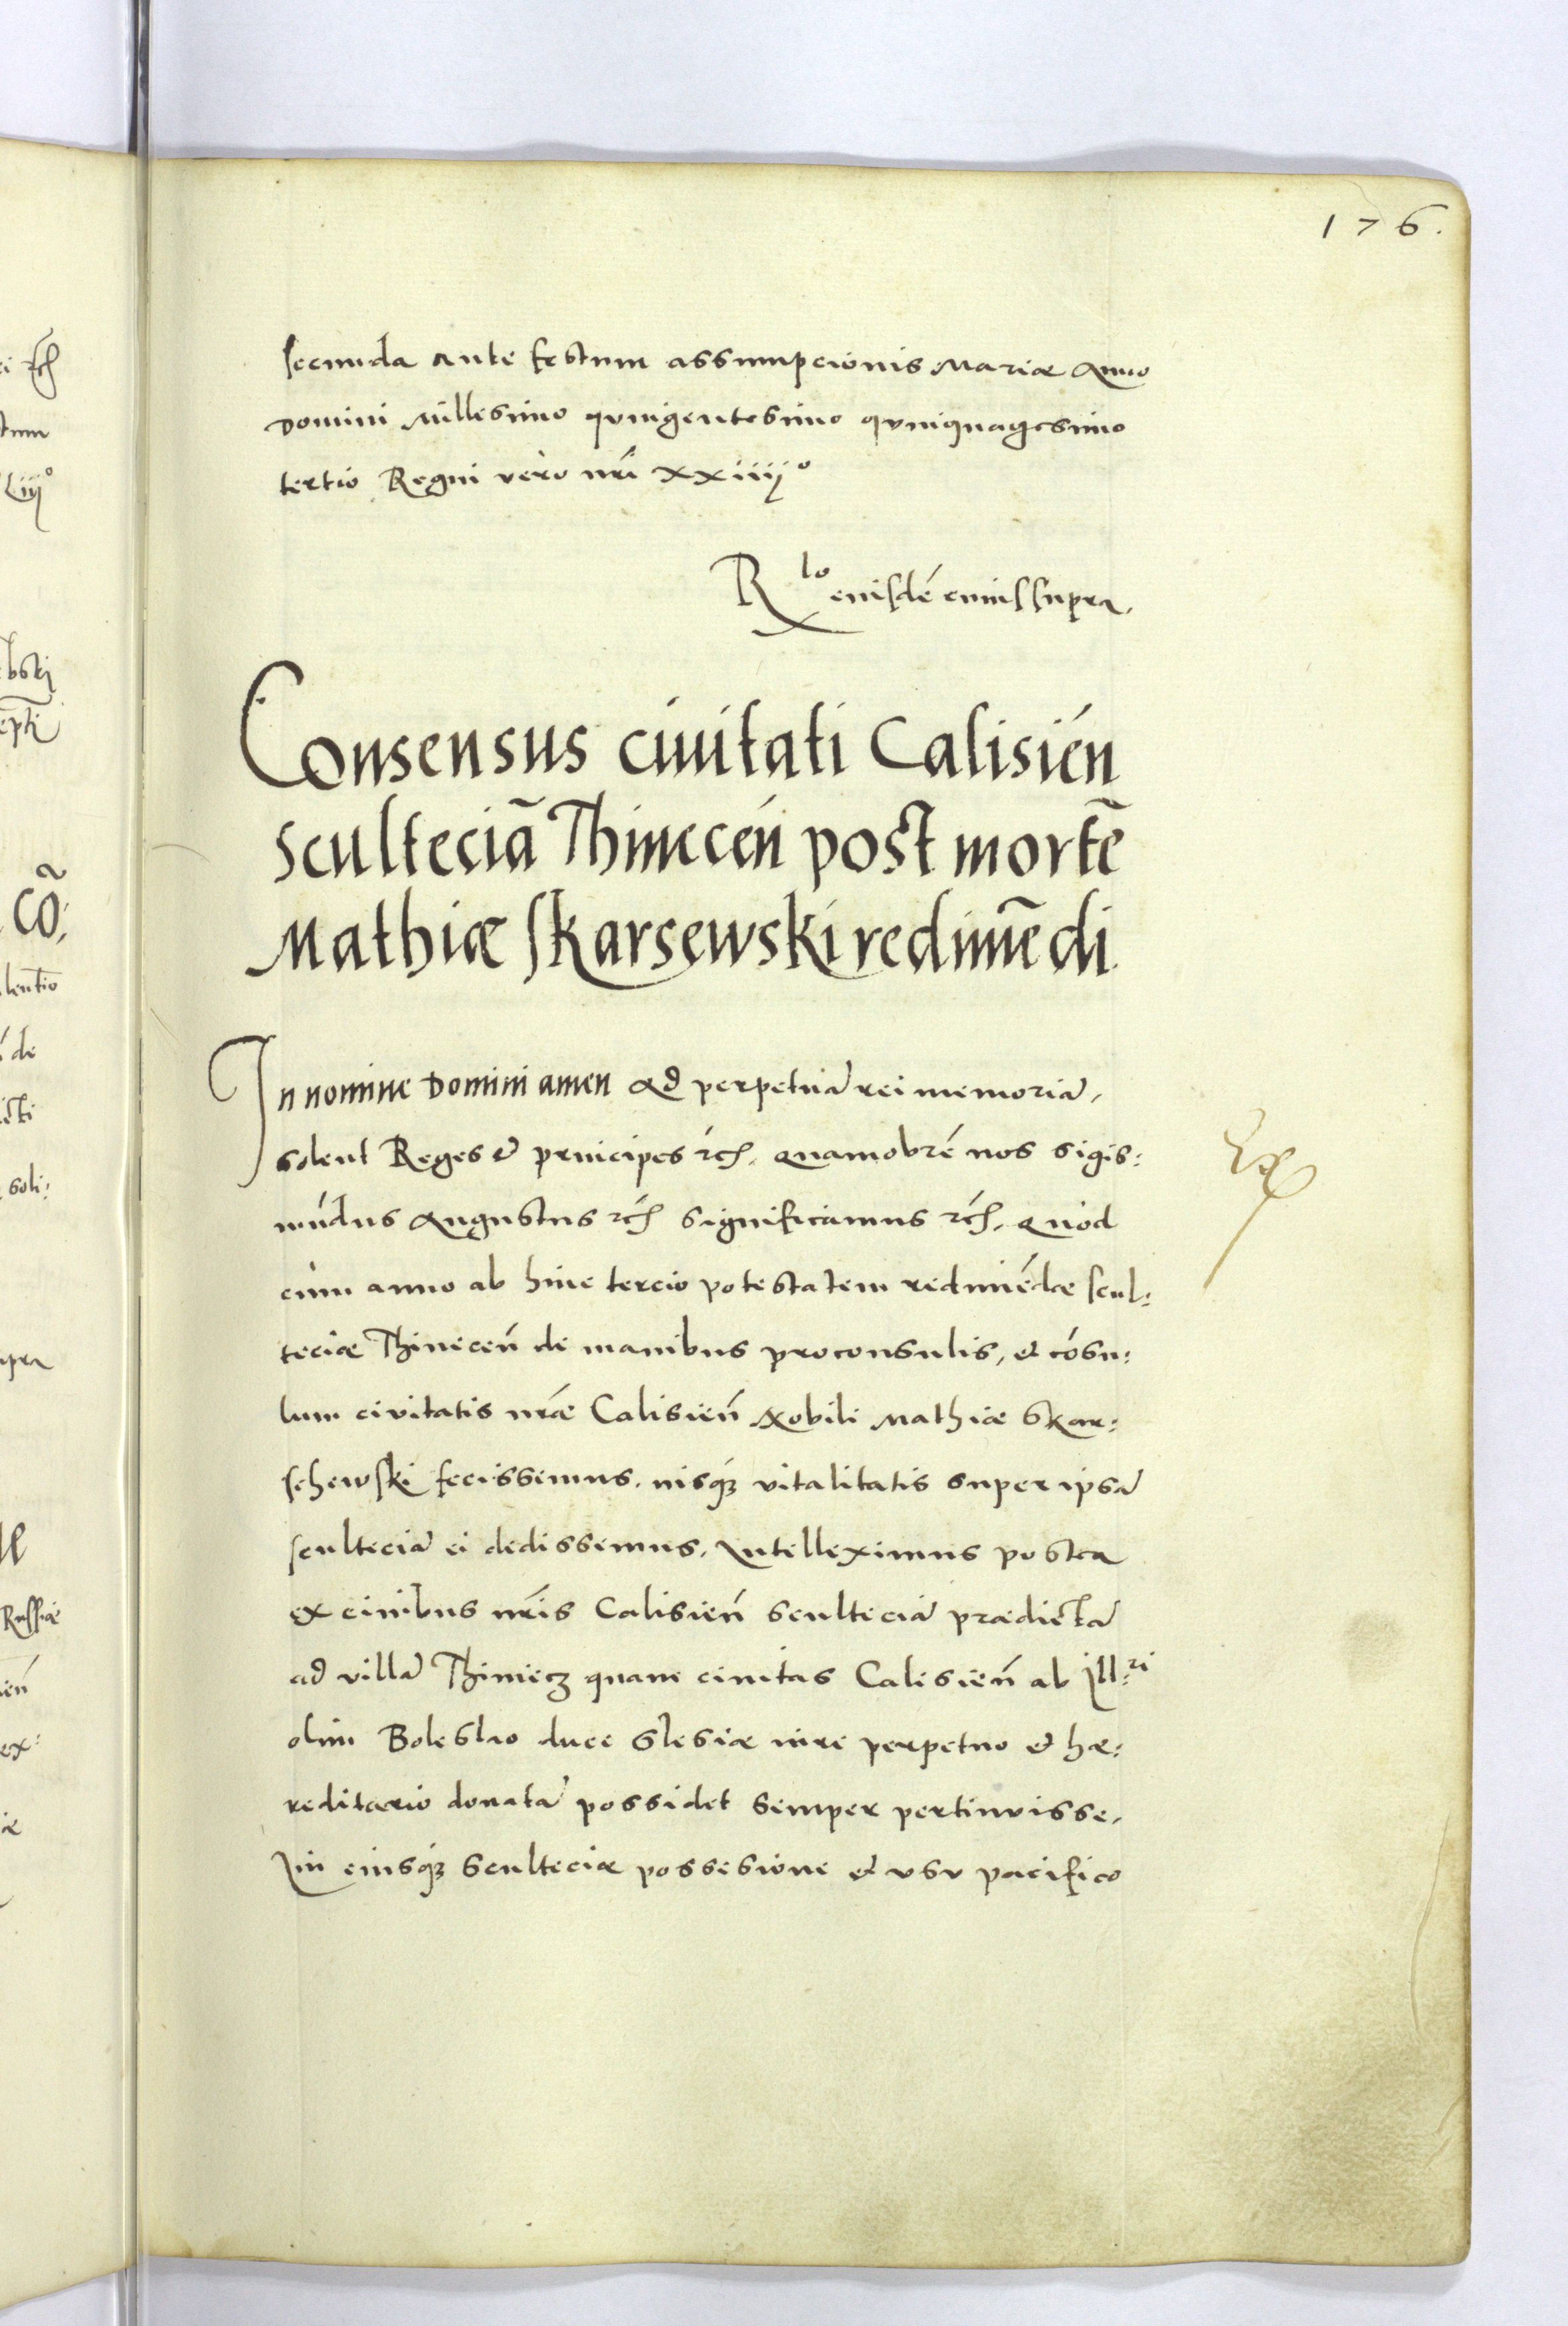 176.
secunda ante festum assumpcionis Mariæ Anno
Domini Millesimo quingentesimo quinquagesimo
tertio Regni vero nr̃i xxiiijº
R^lo eiusdē cuius supra.
Consensus ciuitati Calisień
scultetiā Thineceń post mortē
Mathiæ Skarsewski redimēdi
In nomine Domini amen Ad perpetuā rei memoriā,
solent Reges & principes rc̃. quamobrē nos Sigis:
mūdus Augustus rc̃ significamus rc̃. quòd
cùm anno ab hinc tercio potestatem redimēdæ scul:
teciæ Thineceñ de manibus proconsulis, et cōsu:
lum civitatis nr̃æ Calisień Nobili Mathiæ Skar:
schewski fecissemus, iusq́ vitalitatis super ipsā
scultetiā ei dedissemus, Intelleximus postea
ex ciuibus nr̃is Calisień scultetiā prædictā
ad villā Thiniecz quam ciuitas Calisień ab Ill:^ri
olim Boleslao duce Slesiæ iure perpetuo & hæ:
reditario donatā possidet semper pertinuisse,
In eiusq́ scultetiæ possesione & vsv pacifico